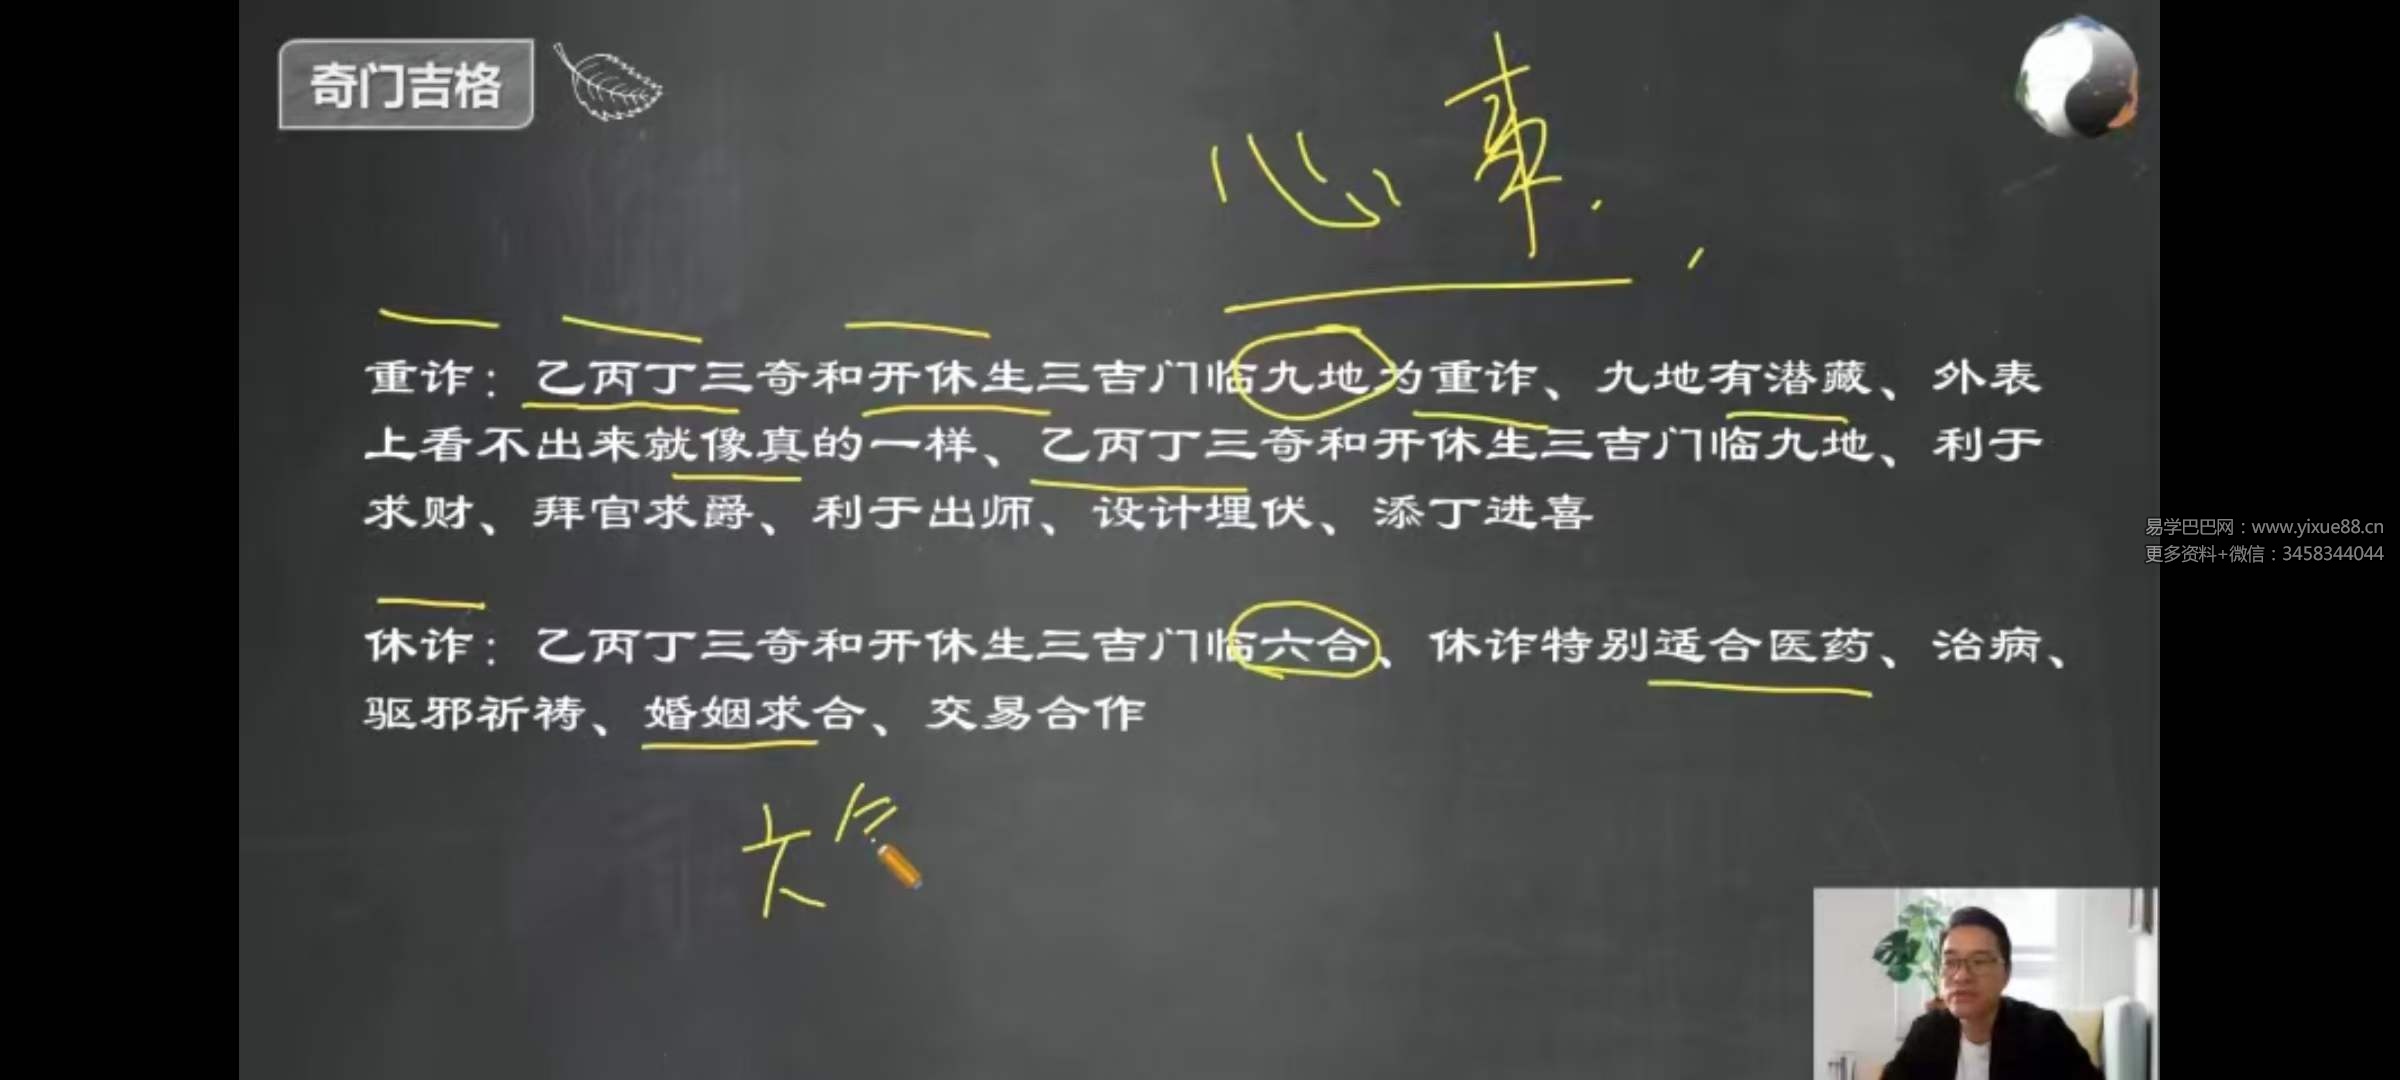 奇门吉格
心事
重诈：乙丙丁三奇和开休生三吉门临九地为重诈、九地有潜藏、外表
上看不出来就像真的一样、乙丙丁三奇和开休生三吉门临九地、利于
求财、拜官求爵、利于出师、设计埋伏、添丁进喜
易学巴巴网：www.yixue88.cn
更多资料+微信：3458344044
休诈：乙丙丁三奇和开休生三吉门临六合、休诈特别适合医药、治病、
驱邪祈祷、婚姻求合、交易合作
六